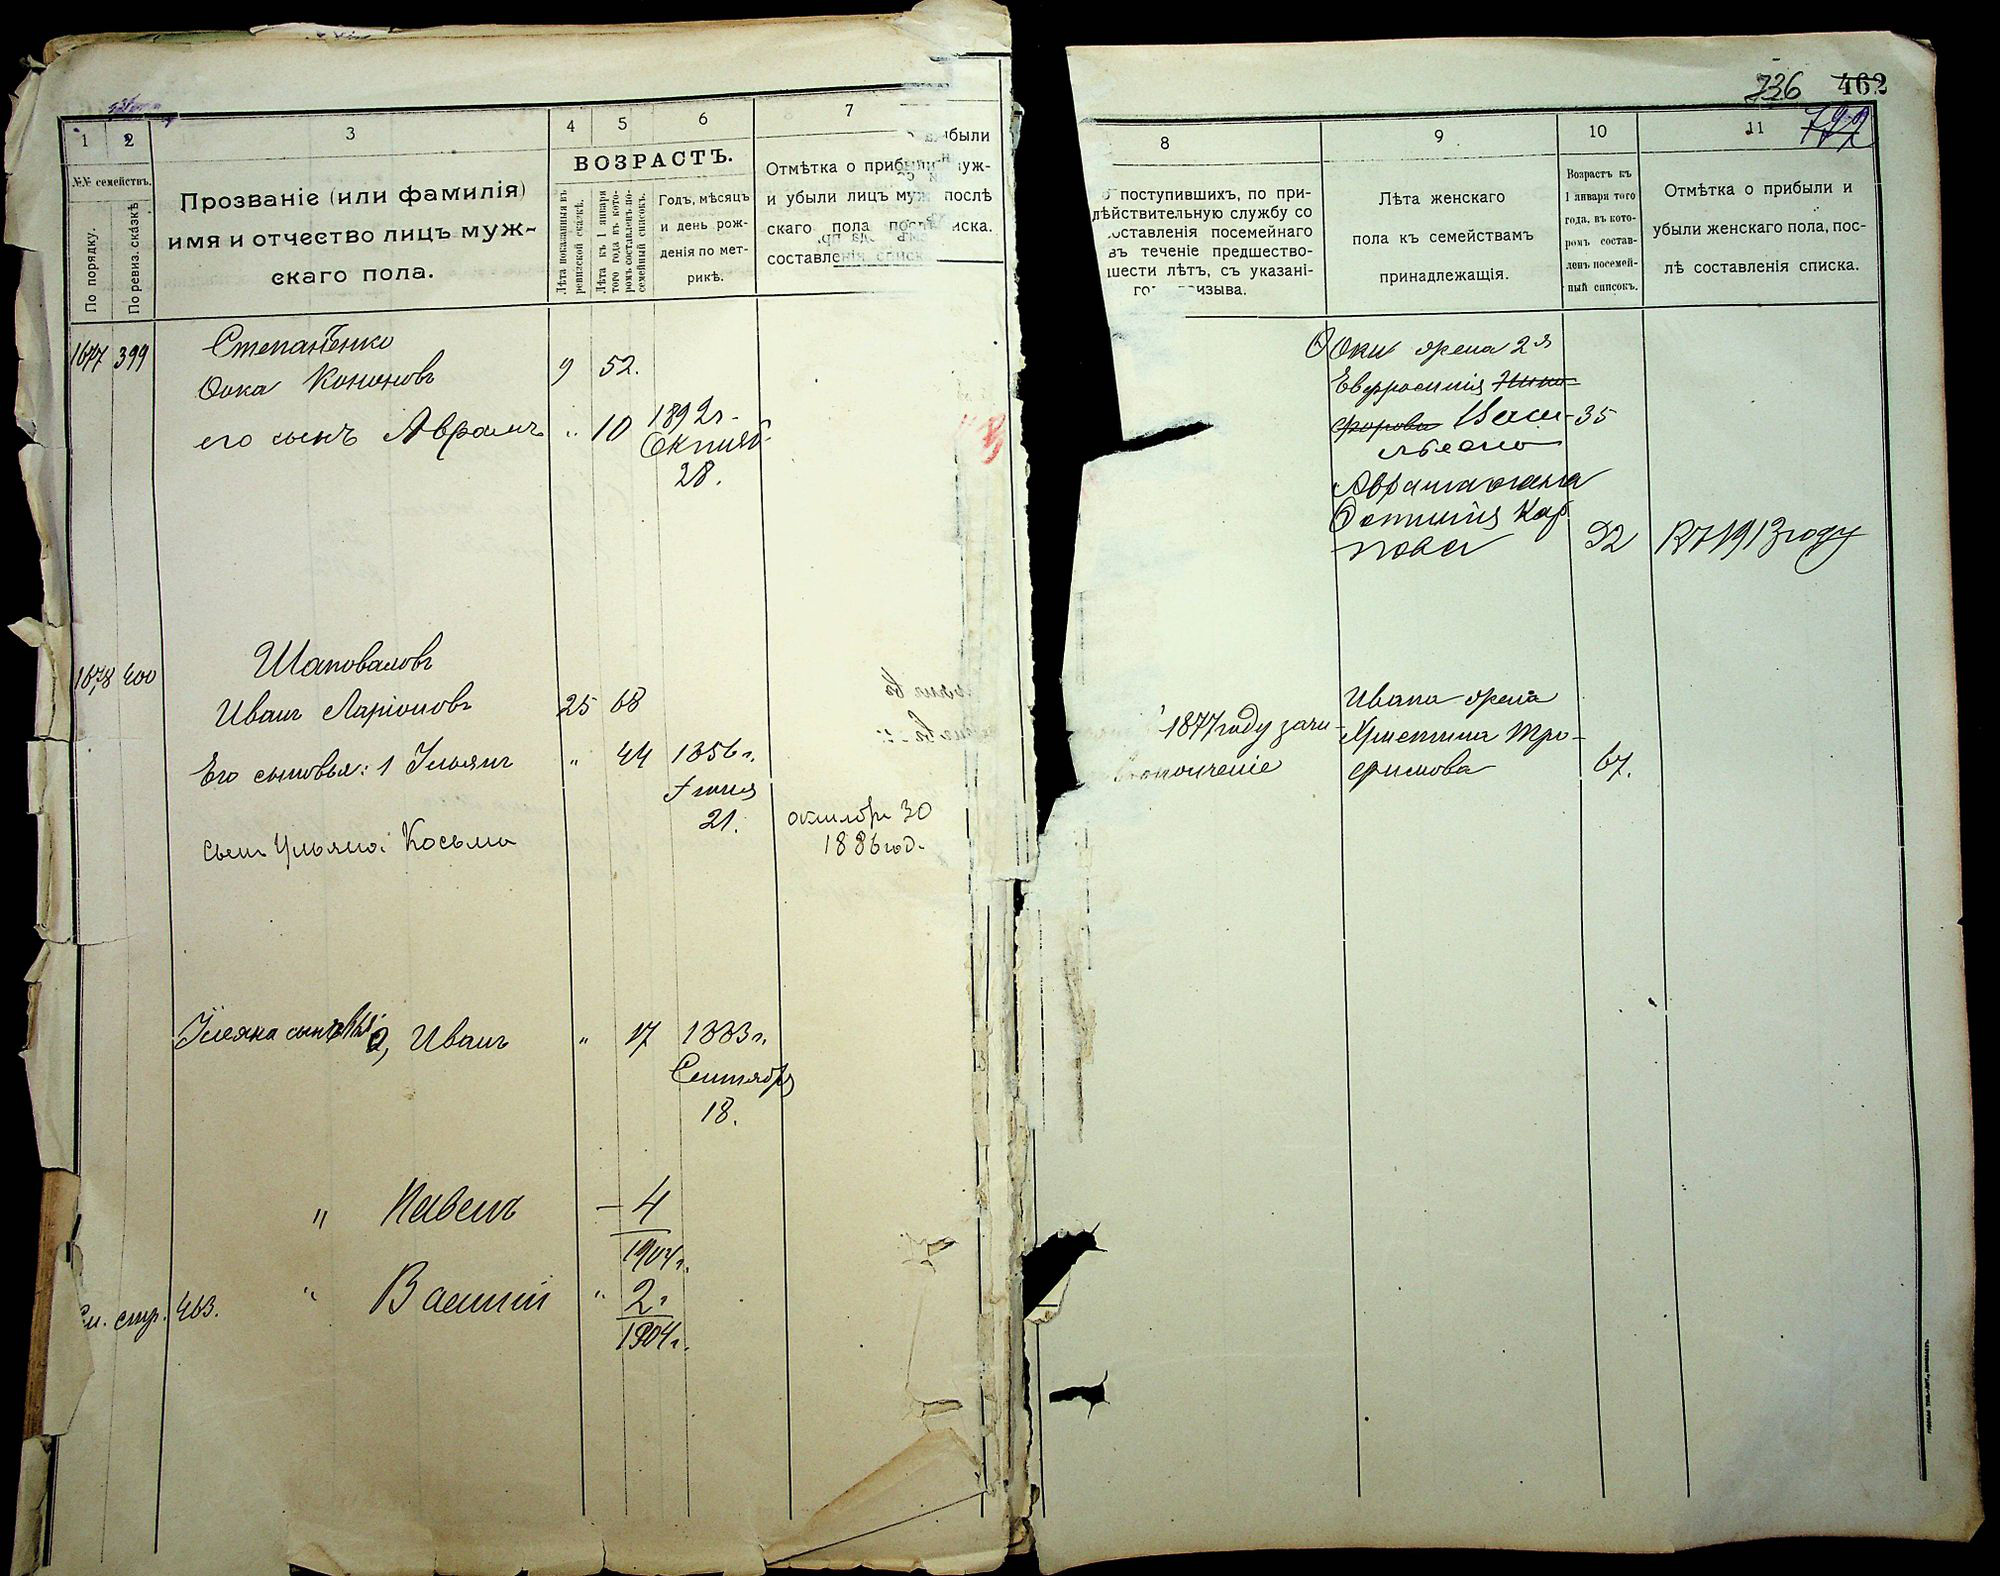 736 462
1 2 3 4 5 6 7
№№ семействъ.
По порядку.
По ревиз. сказкѣ
Прозваніе (или фамилія)
имя и отчество лицъ муж-
скаго пола.
ВОЗРАСТЪ.
Лѣта показанныя въ
ревизской сказкѣ.
Лѣта къ 1 января
того года въ кото-
ромъ составленъ по-
семейный списокъ.
Годъ, мѣсяцъ
и день рож-
денія по мет-
рикѣ.
Отмѣтка о прибыли
и убыли лицъ муж-
скаго пола послѣ
составленія списка.
8 9 10 11
поступившихъ, по при-
дѣйствительную службу со
составленія посемейнаго
въ теченіе предшество-
шести лѣтъ, съ указані-
призыва.
Лѣта женскаго
пола къ семействамъ
принадлежащія.
Возрастъ къ
1 января того
года, въ кото-
ромъ состав-
ленъ посемей-
ный списокъ.
Отмѣтка о прибыли и
убыли женскаго пола, пос-
лѣ составленія списка.
1677 399 Степаненко
Ѳока Кононовъ 9 52.
его сынъ Аврамъ „ 10 1892 г.
Октяб.
28.
Ѳоки жена 2я
Евфросинія Ники-
форова Васи- 35
льева
Аврама жена
Ѳотинія Кар
пова 22 1913 году
1678 400 Шаповаловъ
Иванъ Ларіоновъ 25 68
Его сыновья: 1 Ульянъ „ 44 1856 г.
Іюня
21.
сынъ Ульяна: Косьма октября 30
1886 год.
1877 году зачи-
ополченіе
Ивана жена
Христина Тро-
фимова 67.
Ульяна сыновья 2, Иванъ „ 17 1883 г.
Сентября
18.
„ Павелъ — 4
1904 г.
„ Василій „ 2 г
1904 г.
См. стр. 463.